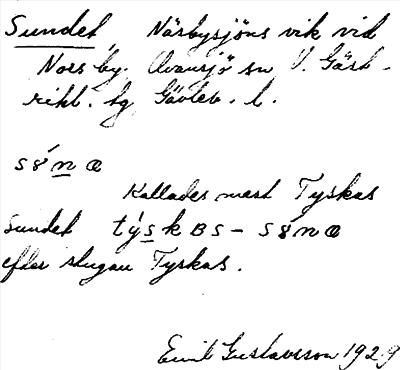 Sundet, Näsbysjöns vik vid
Nors by. Ovansjö sn V. Gäst-
rikl. tg Gävleb. l.
sȣ́n̲ɶ
Kallades mest Tyskas
sundet týs̲kBs-sȣ́nɶ
efter stugan Tyskas.
Emil Gustavsson 1929